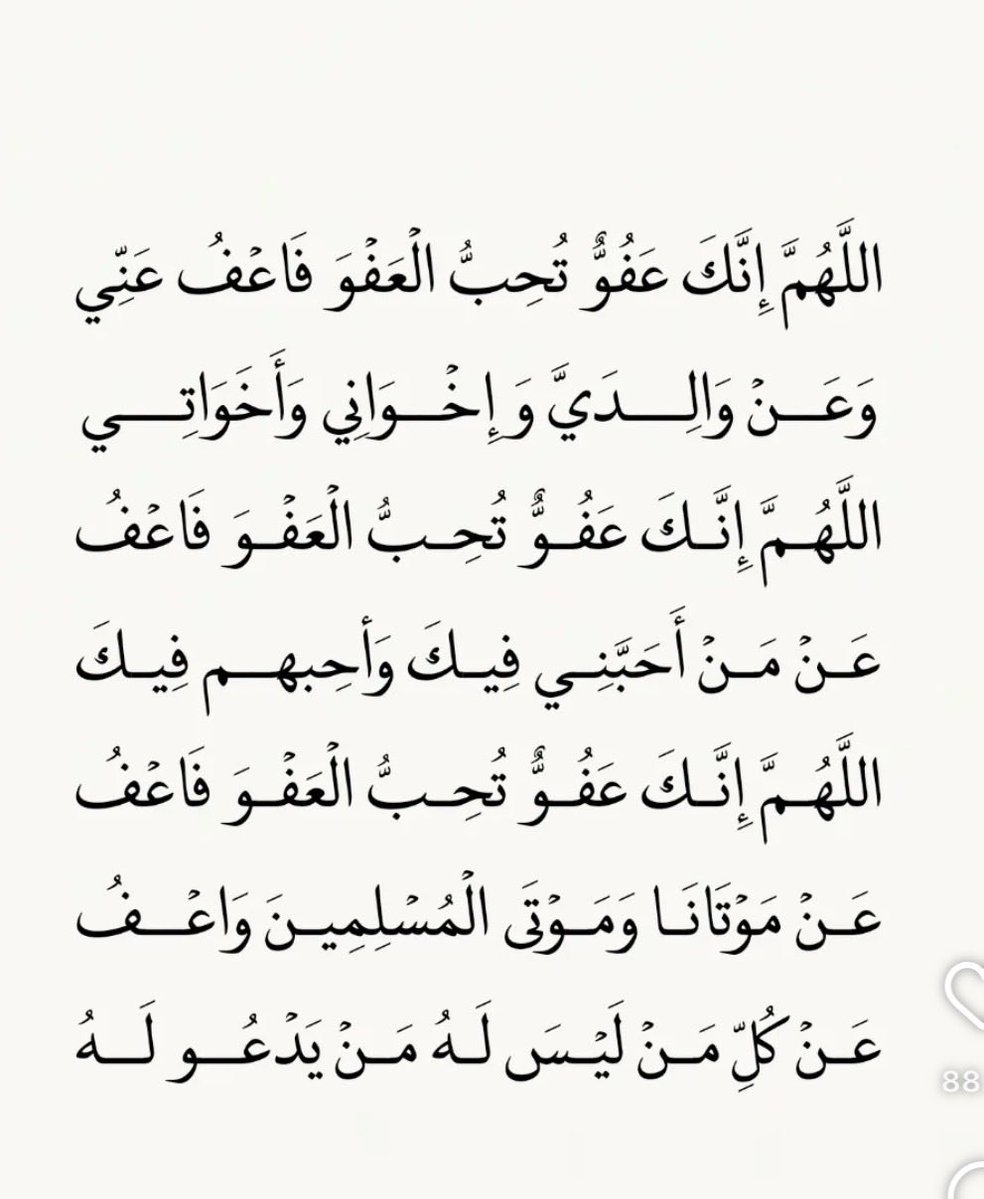 اللَّهُمَّ إِنَّكَ عَفُوٌّ تُحِبُّ الْعَفْوَ فَاعْفُ عَنِّي
وَعَـنْ وَالِـدَيَّ وَ إِخْـوَانِي وَأَخَوَاتِـي
اللَّهُـمَّ إِنَّـكَ عَفُـوٌّ تُحِـبُّ الْعَفْـوَ فَاعْفُ
عَـنْ مَـنْ أَحَبَّنِـي فِيـكَ وَأحِبهـم فِيـكَ
اللَّهُـمَّ إِنَّـكَ عَفُـوٌّ تُحِـبُّ الْعَفْـوَ فَاعْفُ
عَـنْ مَوْتَانَـا وَمَـوْتَى الْمُسْلِمِيـنَ وَاعْـفُ
عَـنْ كُلِّ مَـنْ لَيْـسَ لَـهُ مَـنْ يَدْعُـو لَـهُ
88